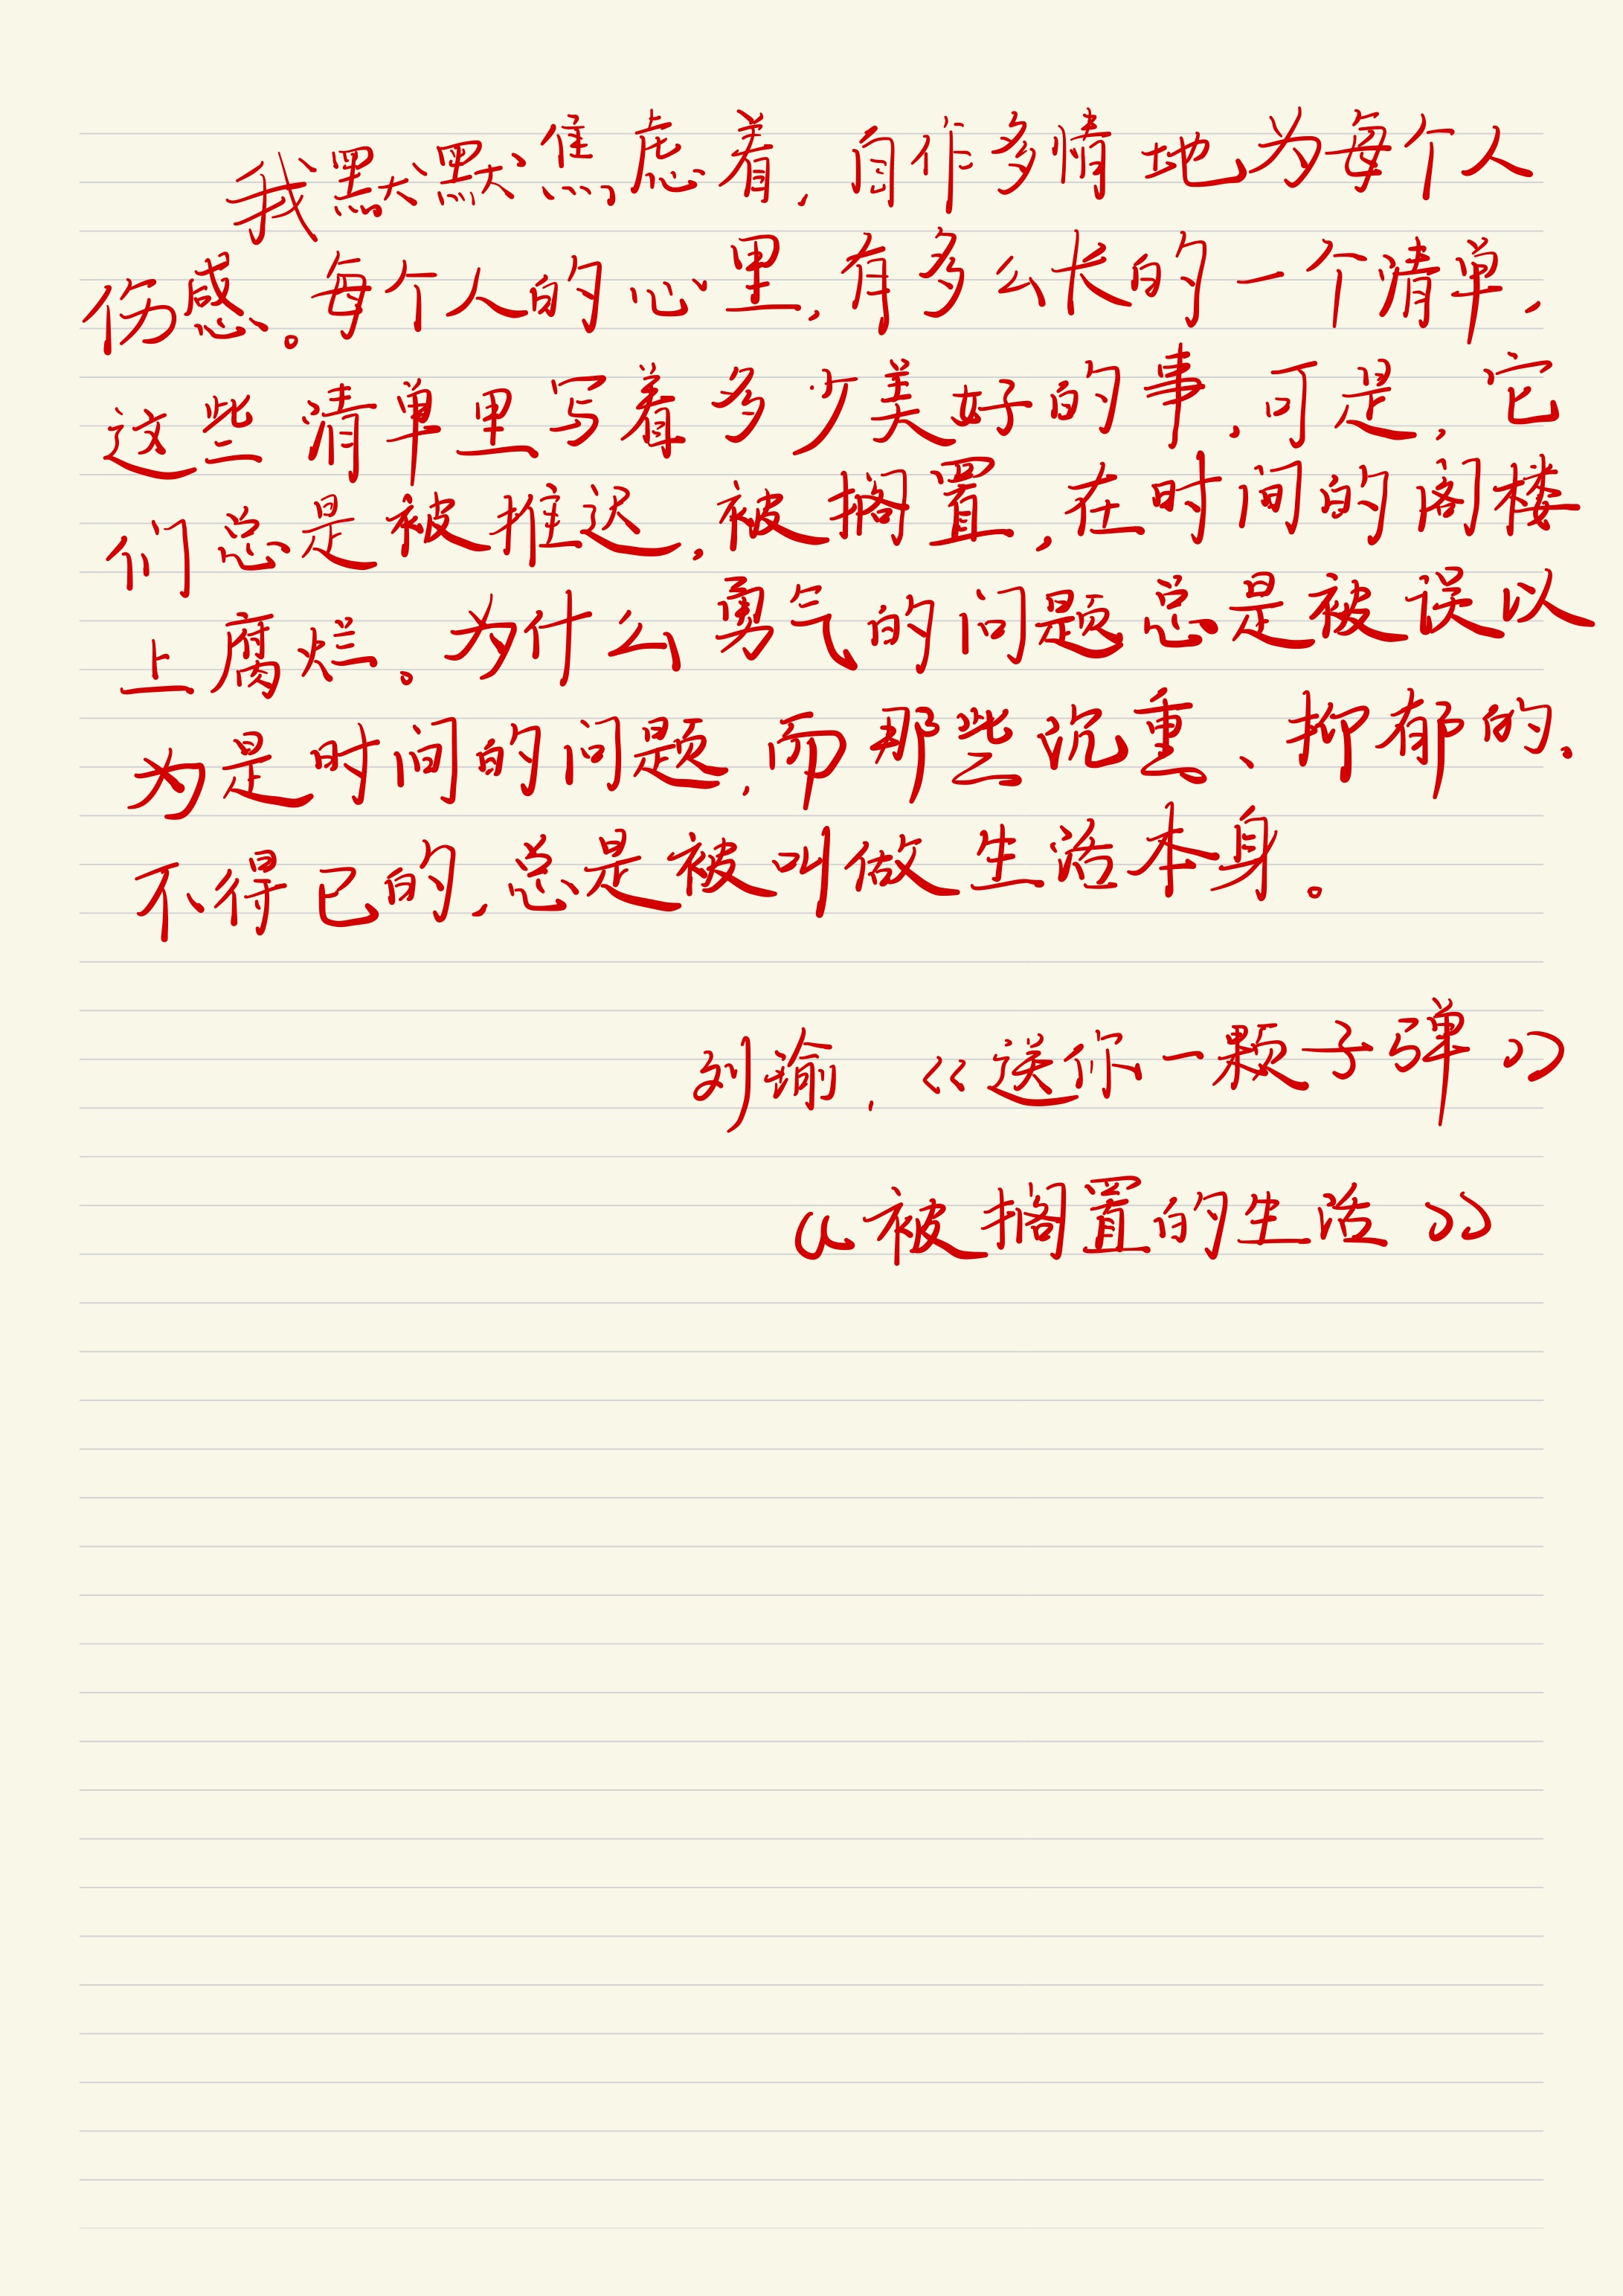 我默默焦虑着，自作多情地为每个人
伤感。每个人的心里，有多么长的一个清单，
这些清单里写着多少美好的事，可是，它
们总是被推迟，被搁置，在时间的阁楼
上腐烂。为什么勇气的问题总是被误以
为是时间的问题，而那些沉重、抑郁的、
不得已的，总是被叫做生活本身。
刘瑜，《送你一颗子弹》
《被搁置的生活》